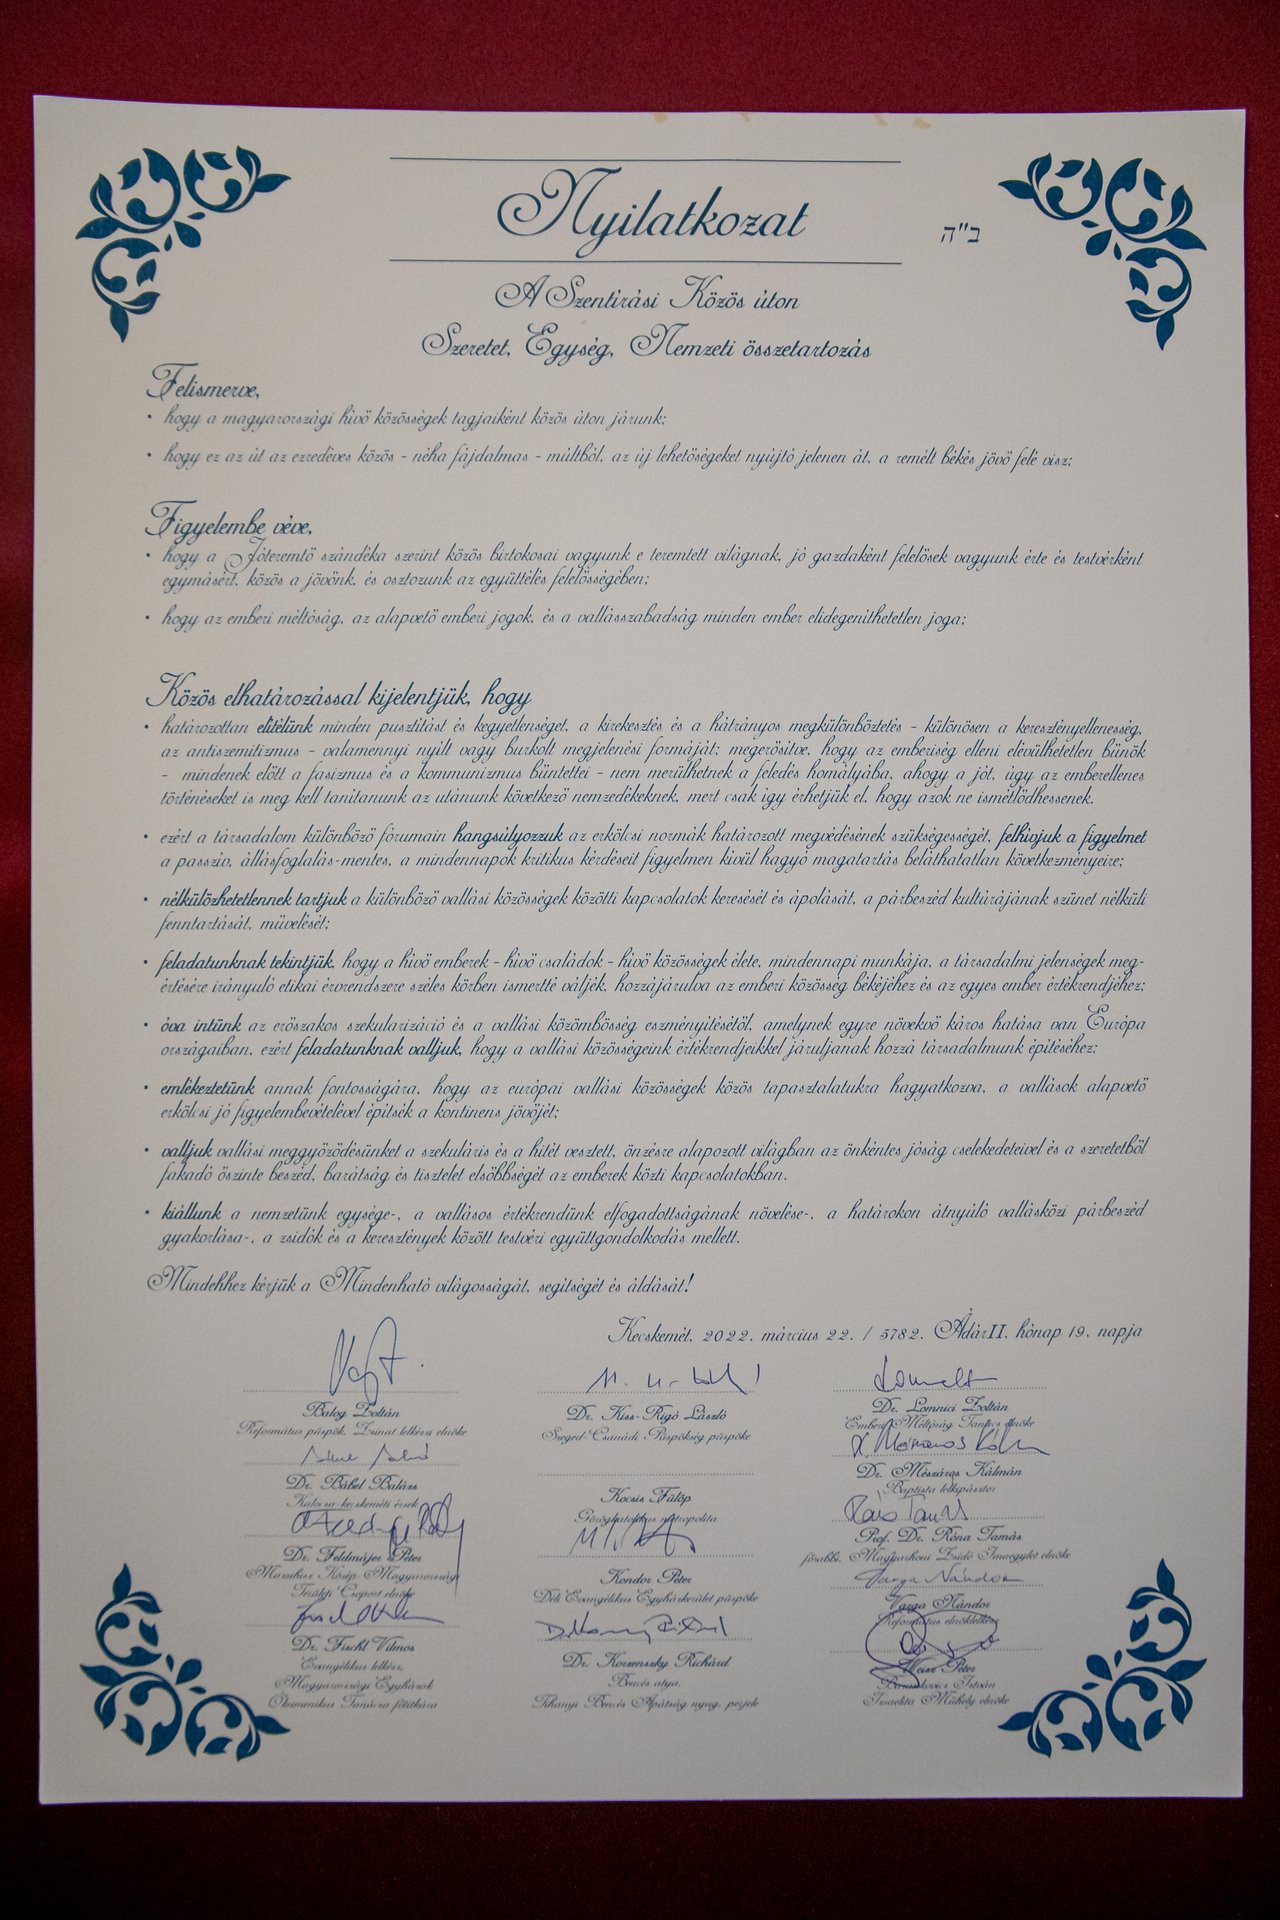 Nyilatkozat
ב"ה
A Szentírási Közös úton
Szeretet, Egység, Nemzeti összetartozás
Felismerve,
• hogy a magyarországi hívő közösségek tagjaiként közös úton járunk;
• hogy ez az út az ezredéves közös - néha fájdalmas - múltból, az új lehetőségeket nyújtó jelenen át, a remélt békés jövő felé visz;
Figyelembe véve,
• hogy a Jóteremtő szándéka szerint közös birtokosai vagyunk e teremtett világnak, jó gazdaként felelősek vagyunk érte és testvérként
egymásért, közös a jövőnk, és osztozunk az együttélés felelősségében;
• hogy az emberi méltóság, az alapvető emberi jogok, és a vallásszabadság minden ember elidegeníthetetlen joga;
Közös elhatározással kijelentjük, hogy
• határozottan elítélünk minden pusztítást és kegyetlenséget, a kirekesztés és a hátrányos megkülönböztetés - különösen a keresztényellenesség,
az antiszemitizmus - valamennyi nyílt vagy burkolt megjelenési formáját; megerősítve, hogy az emberiség elleni elévülhetetlen bűnök
- mindenek előtt a fasizmus és a kommunizmus bűntettei - nem merülhetnek a feledés homályába, ahogy a jót, úgy az emberellenes
történéseket is meg kell tanítanunk az utánunk következő nemzedékeknek, mert csak így érhetjük el, hogy azok ne ismétlődhessenek.
• ezért a társadalom különböző fórumain hangsúlyozzuk az erkölcsi normák határozott megvédésének szükségességét, felhívjuk a figyelmet
a passzív, állásfoglalás-mentes, a mindennapok kritikus kérdéseit figyelmen kívül hagyó magatartás beláthatatlan következményeire;
• nélkülözhetetlennek tartjuk a különböző vallási közösségek közötti kapcsolatok keresését és ápolását, a párbeszéd kultúrájának szünet nélküli
fenntartását, művelését;
• feladatunknak tekintjük, hogy a hívő emberek - hívő családok - hívő közösségek élete, mindennapi munkája, a társadalmi jelenségek meg-
értésére irányuló etikai érvrendszere széles körben ismertté váljék, hozzájárulva az emberi közösség békéjéhez és az egyes ember értékrendjéhez;
• óva intünk az erőszakos szekularizáció és a vallási közömbösség eszményítésétől, amelynek egyre növekvő káros hatása van Európa
országaiban, ezért feladatunknak valljuk, hogy a vallási közösségeink értékrendjeikkel járuljanak hozzá társadalmunk építéséhez;
• emlékeztetünk annak fontosságára, hogy az európai vallási közösségek közös tapasztalatukra hagyatkozva, a vallások alapvető
erkölcsi jó figyelembevételével építsék a kontinens jövőjét;
• valljuk vallási meggyőződésünket a szekuláris és a hitét vesztett, önzésre alapozott világban az önkéntes jóság cselekedeteivel és a szeretetből
fakadó őszinte beszéd, barátság és tisztelet elsőbbségét az emberek közti kapcsolatokban.
• kiállunk a nemzetünk egysége-, a vallásos értékrendünk elfogadottságának növelése-, a határokon átnyúló vallásközi párbeszéd
gyakorlása-, a zsidók és a keresztények között testvéri együttgondolkodás mellett.
Mindehhez kérjük a Mindenható világosságát, segítségét és áldását!
Kecskemét, 2022. március 22. / 5782. ÁdárII. hónap 19. napja
Balog Zoltán
Református püspök, Zsinat lelkészi elnöke
Dr. Kiss-Rigó László
Szeged-Csanádi Püspökség püspöke
Dr. Lomnici Zoltán
Emberi Méltóság Tanács elnöke
Dr. Bábel Balázs
Kalocsa-kecskeméti érsek
Kocsis Fülöp
Görögkatolikus metropolita
Dr. Mészáros Kálmán
Baptista lelkipásztor
Dr. Feldmájer Péter
Mazsihisz Közép-Magyarországi
Területi Csoport elnöke
Kondor Péter
Déli Evangélikus Egyházkerület püspöke
Prof. Dr. Róna Tamás
főrabbi, Magyarhoni Zsidó Imaegylet elnöke
Varga Nándor
Református elnöklelkész
Dr. Fischl Vilmos
Evangélikus lelkész,
Magyarországi Egyházak
Ökumenikus Tanácsa főtitkára
Dr. Korzenszky Richárd
Bencés atya,
Tihanyi Bencés Apátság nyug. perjele
Weisz Péter
Baracskovics István
Izraelita Műhely elnöke